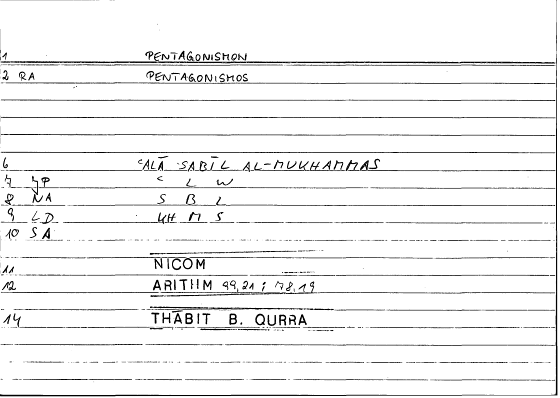 1 PENTAGONISMON
2 RA PENTAGONISMOS
6 ʿALĀ SABĪL AL-MUKHAMMAS
7 JP ʿ L W
8 NA S B L
9 LD KH M S
10 SA
11 NICOM
12 ARITHM 99,21 ; 78,19
14 THĀBIT B. QURRA